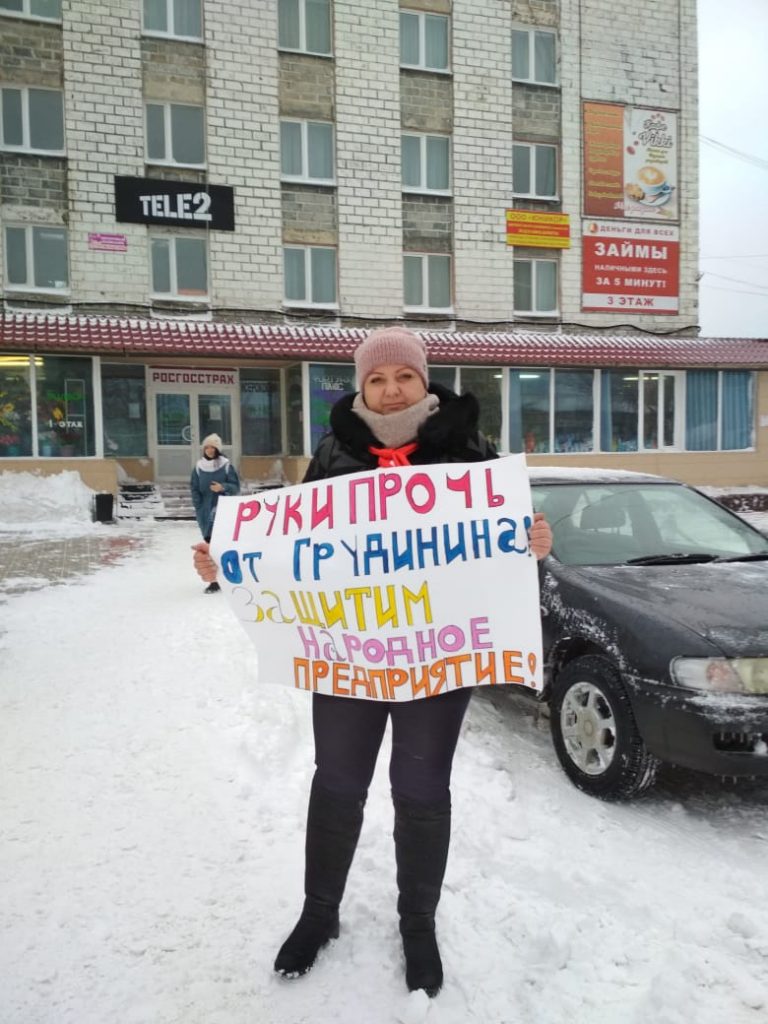 TELE2
ООО «ЮНИКОР»
Vikki
ДЕНЬГИ ДЛЯ ВСЕХ
ЗАЙМЫ
НАЛИЧНЫМИ ЗДЕСЬ
ЗА 5 МИНУТ!
3 ЭТАЖ
РОСГОССТРАХ
1-ЭТАЖ
РУКИ ПРОЧЬ
ОТ ГРУДИНИНА!
ЗАЩИТИМ
НАРОДНОЕ
ПРЕДПРИЯТИЕ!